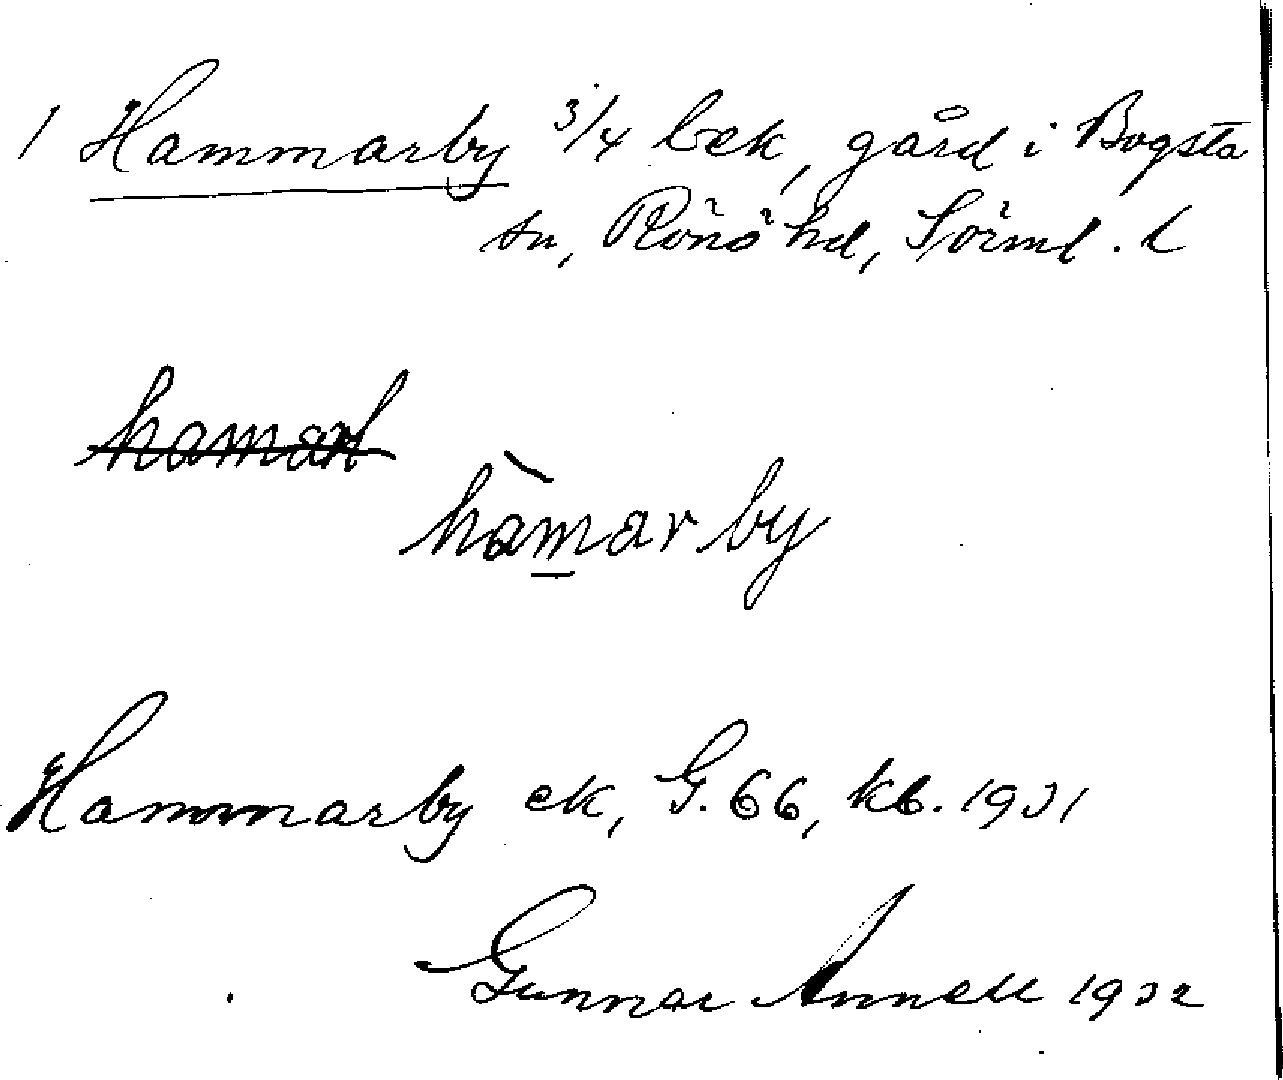 1 Hammarby 3/4 bek, gård i Bogsta
sn, Rönö hd, Sörml. l
hamarl
hàmarby
Hammarby ek, G. 66, kb. 1931
Gunnar Annell 1932